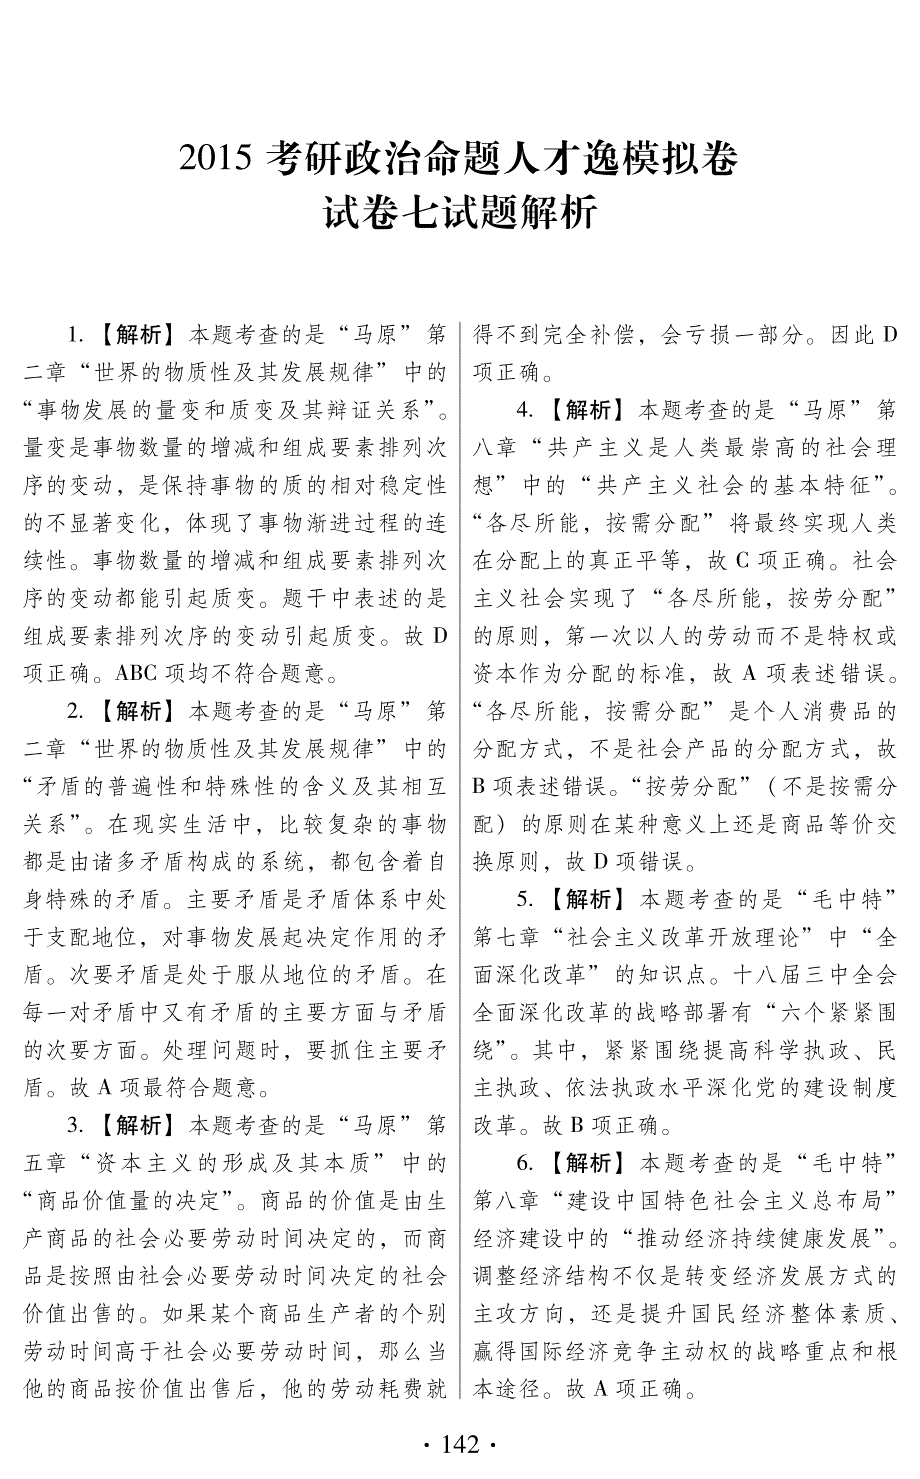 2015 考研政治命题人才逸模拟卷
试卷七试题解析
1. 【解析】本题考查的是“马原”第
二章“世界的物质性及其发展规律”中的
“事物发展的量变和质变及其辩证关系”。
量变是事物数量的增减和组成要素排列次
序的变动，是保持事物的质的相对稳定性
的不显著变化，体现了事物渐进过程的连
续性。事物数量的增减和组成要素排列次
序的变动都能引起质变。题干中表述的是
组成要素排列次序的变动引起质变。故 D
项正确。ABC 项均不符合题意。
2. 【解析】本题考查的是“马原”第
二章“世界的物质性及其发展规律”中的
“矛盾的普遍性和特殊性的含义及其相互
关系”。在现实生活中，比较复杂的事物
都是由诸多矛盾构成的系统，都包含着自
身特殊的矛盾。主要矛盾是矛盾体系中处
于支配地位，对事物发展起决定作用的矛
盾。次要矛盾是处于服从地位的矛盾。在
每一对矛盾中又有矛盾的主要方面与矛盾
的次要方面。处理问题时，要抓住主要矛
盾。故 A 项最符合题意。
3. 【解析】本题考查的是“马原”第
五章“资本主义的形成及其本质”中的
“商品价值量的决定”。商品的价值是由生
产商品的社会必要劳动时间决定的，而商
品是按照由社会必要劳动时间决定的社会
价值出售的。如果某个商品生产者的个别
劳动时间高于社会必要劳动时间，那么当
他的商品按价值出售后，他的劳动耗费就
得不到完全补偿，会亏损一部分。因此 D
项正确。
4. 【解析】本题考查的是“马原”第
八章“共产主义是人类最崇高的社会理
想”中的“共产主义社会的基本特征”。
“各尽所能，按需分配”将最终实现人类
在分配上的真正平等，故 C 项正确。社会
主义社会实现了“各尽所能，按劳分配”
的原则，第一次以人的劳动而不是特权或
资本作为分配的标准，故 A 项表述错误。
“各尽所能，按需分配”是个人消费品的
分配方式，不是社会产品的分配方式，故
B 项表述错误。“按劳分配”（不是按需分
配）的原则在某种意义上还是商品等价交
换原则，故 D 项错误。
5. 【解析】本题考查的是“毛中特”
第七章“社会主义改革开放理论”中“全
面深化改革”的知识点。十八届三中全会
全面深化改革的战略部署有“六个紧紧围
绕”。其中，紧紧围绕提高科学执政、民
主执政、依法执政水平深化党的建设制度
改革。故 B 项正确。
6. 【解析】本题考查的是“毛中特”
第八章“建设中国特色社会主义总布局”
经济建设中的“推动经济持续健康发展”。
调整经济结构不仅是转变经济发展方式的
主攻方向，还是提升国民经济整体素质、
赢得国际经济竞争主动权的战略重点和根
本途径。故 A 项正确。
· 142 ·